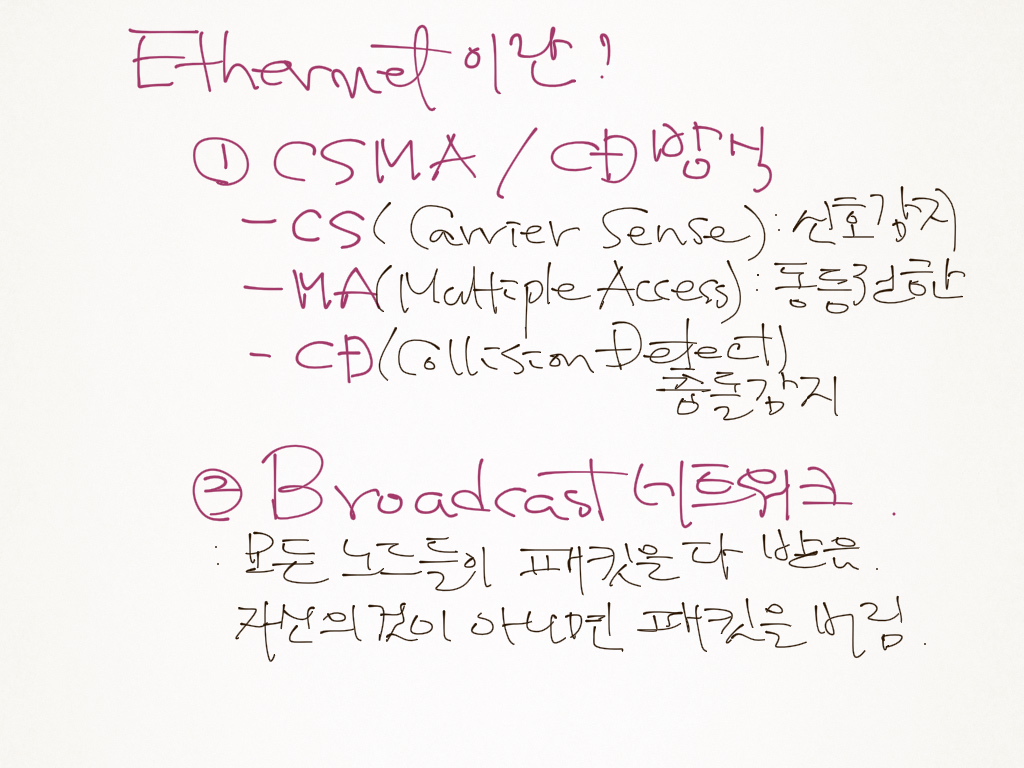 Ethernet 이란?
① CSMA / CD 방식
- CS(Carrier Sense) : 신호감지
- MA(Multiple Access) : 동등권한
- CD(Collision Detect)
충돌감지
② Broadcast 네트워크.
: 모든 노드들이 패킷을 다 받음.
자신의 것이 아니면 패킷을 버림.